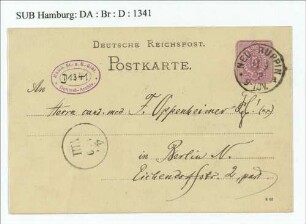 SUB Hamburg: DA : Br : D : 1341
DEUTSCHE REICHSPOST.
POSTKARTE.
NEU-RUPPIN
D 1341
An
Herrn cand. med. F. Oppenheimer
in Berlin N.
Eichendorffstr. 2, part.